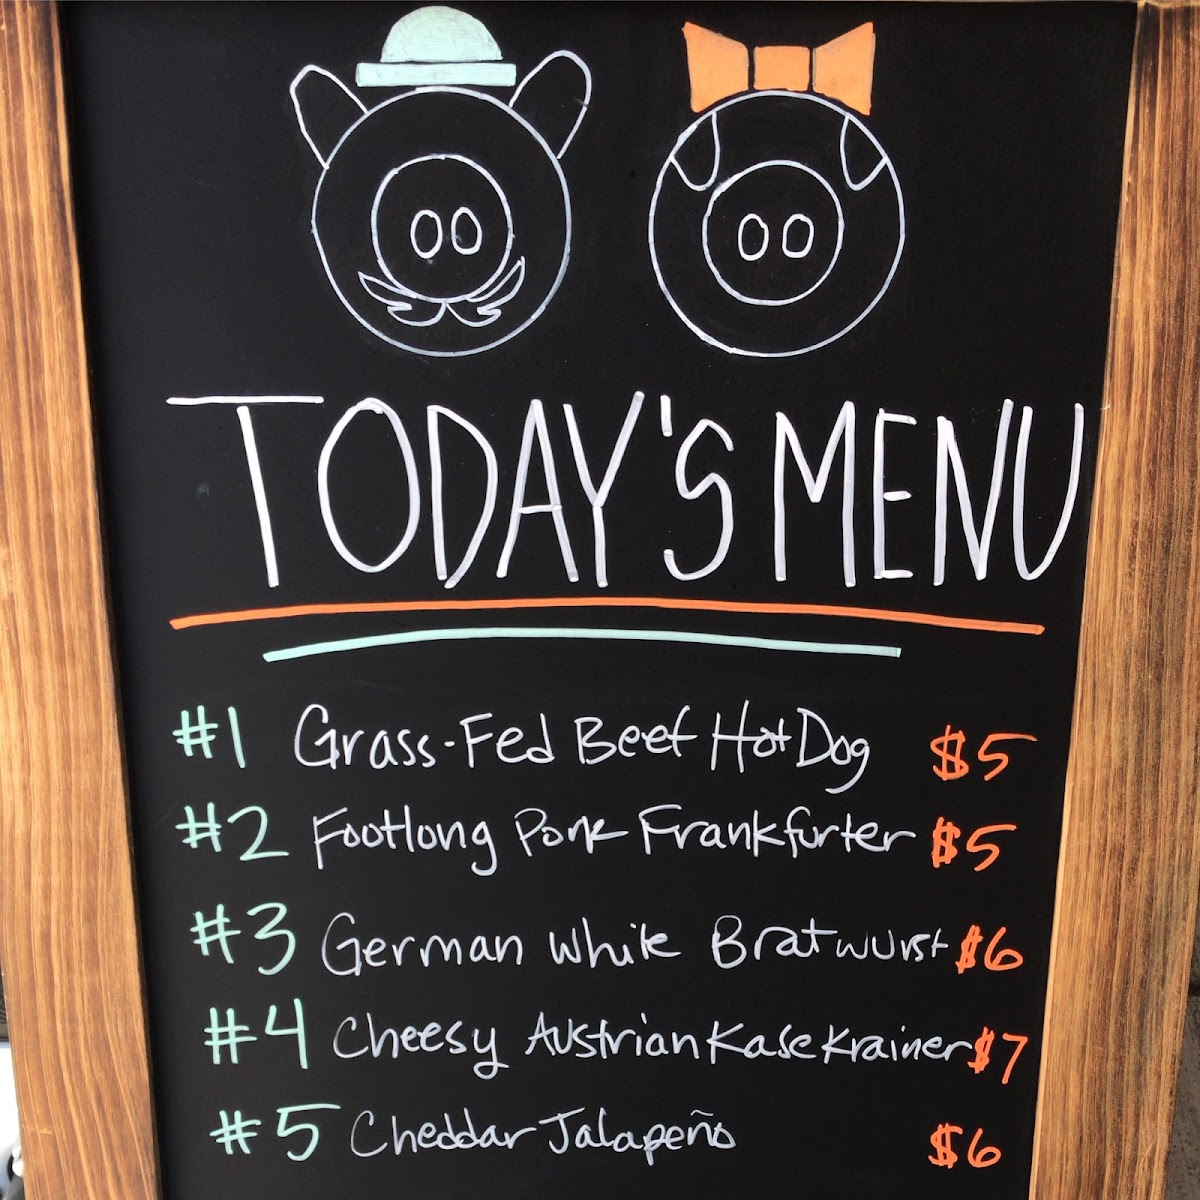 TODAY'S MENU
#1 Grass-Fed Beef Hot Dog $5
#2 Footlong Pork Frankfurter $5
#3 German White Bratwurst $6
#4 Cheesy Austrian Kase Krainer $7
#5 Cheddar Jalapeño $6